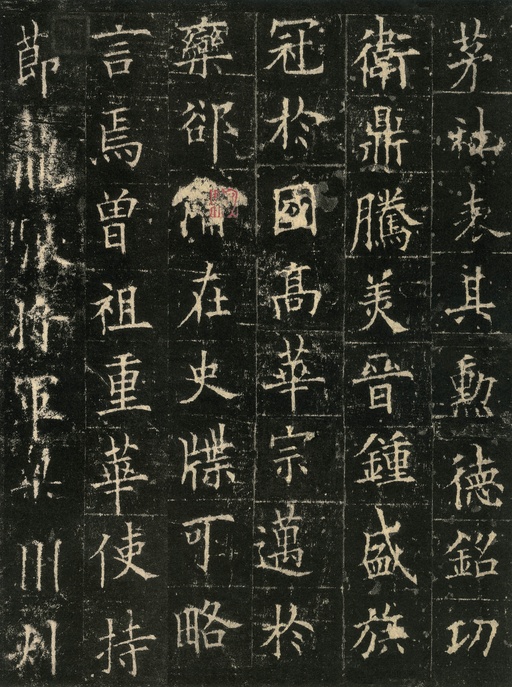 茅社表其勳德銘功
衛鼎騰美晉鍾盛族
冠於國高華宗邁於
欒郤備在史牒可略
言焉曾祖重華使持
節龍驤將軍梁州刺